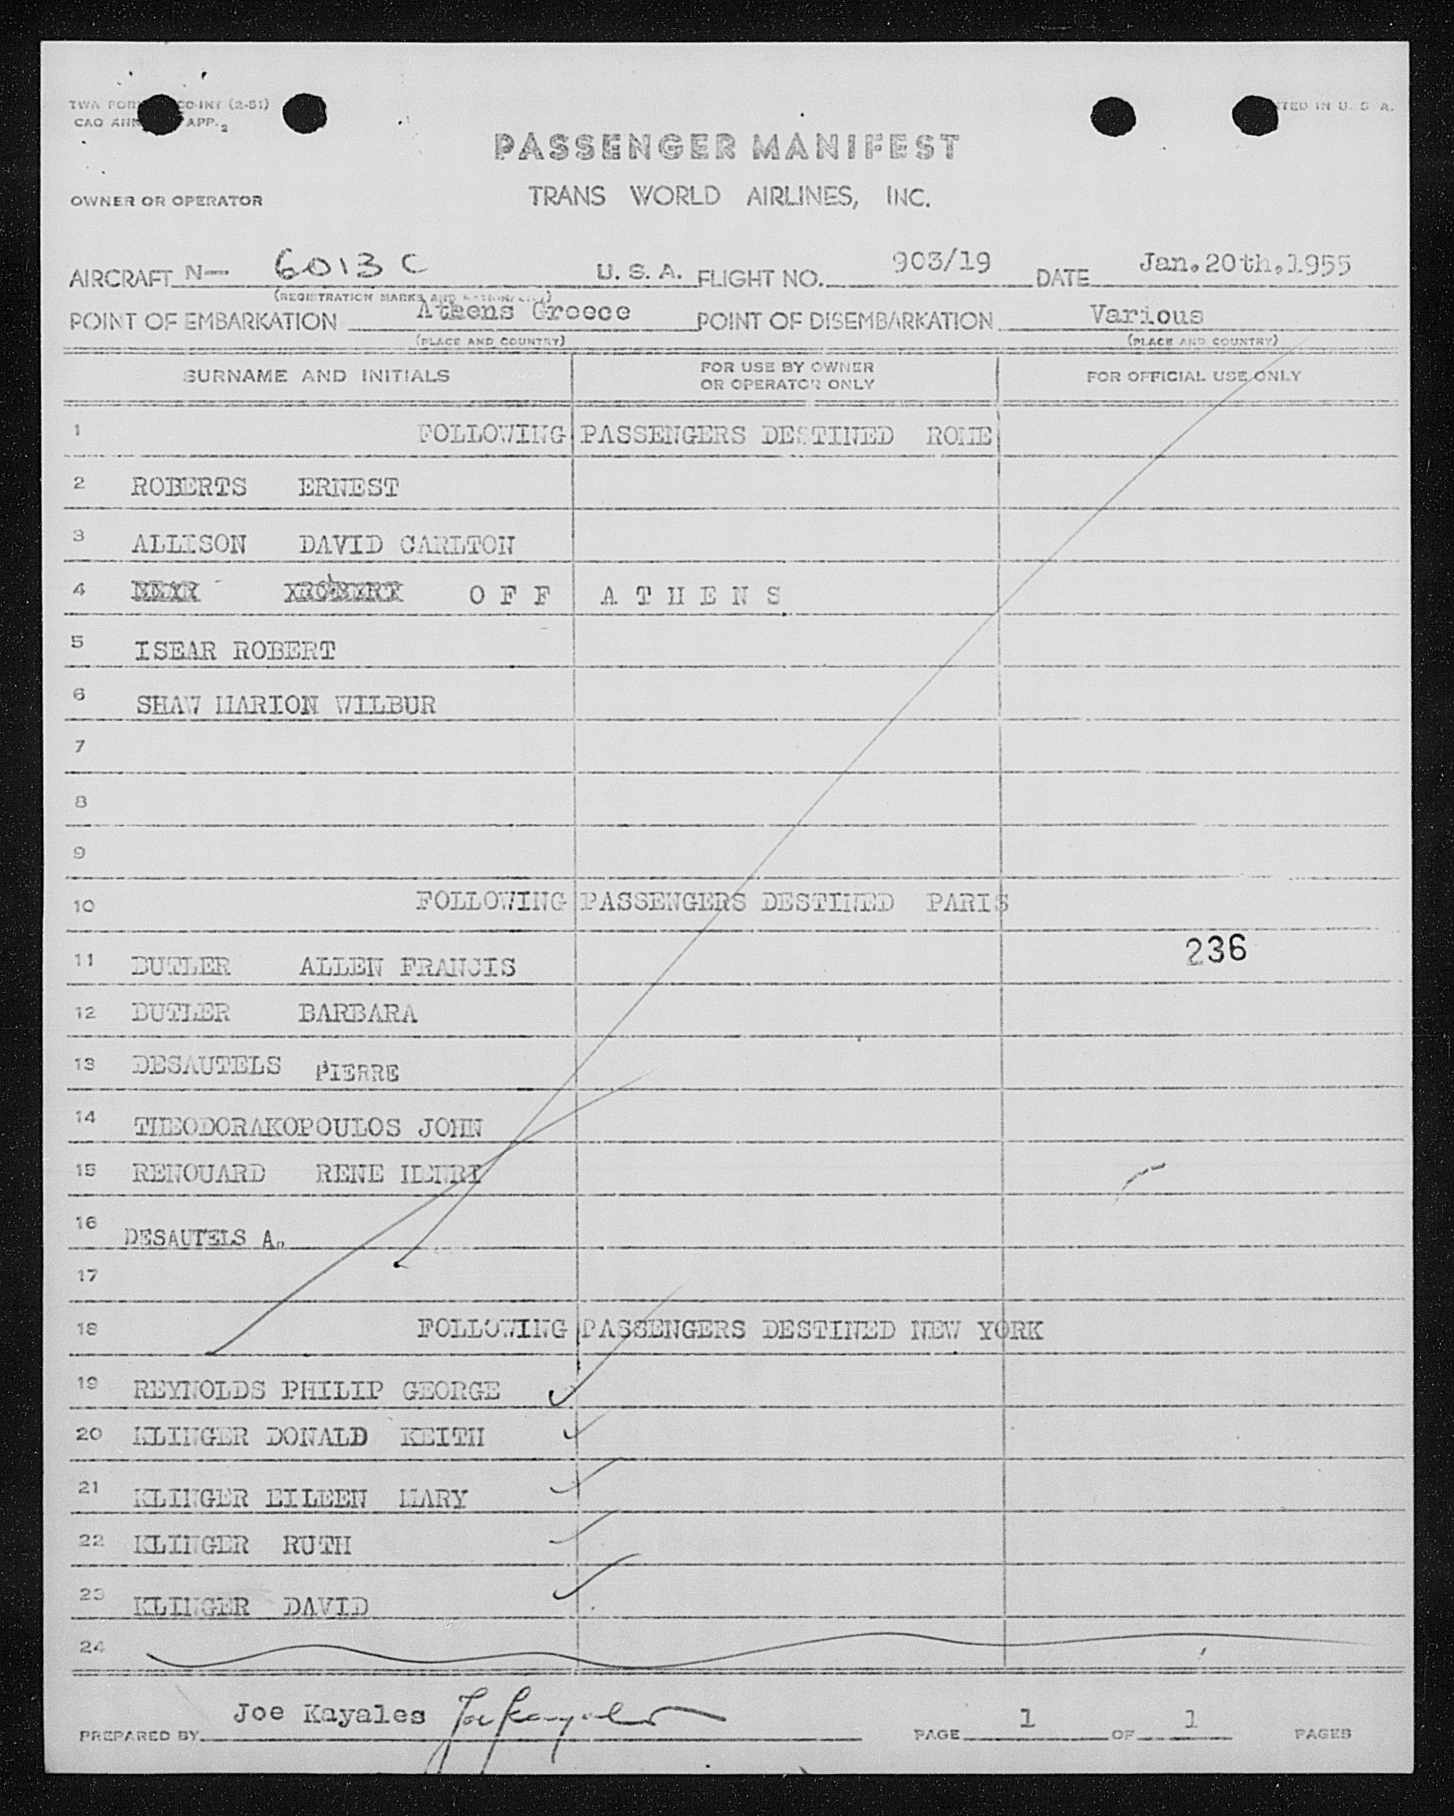 TWA FORM CO-INT (2-51)
CAO ANN APP. 2
PRINTED IN U. S. A.
PASSENGER MANIFEST
OWNER OR OPERATOR TRANS WORLD AIRLINES, INC.
AIRCRAFT N— 6013 C U. S. A. FLIGHT NO. 903/19 DATE Jan.20th.1955
(REGISTRATION MARKS AND NATIONALITY)
POINT OF EMBARKATION Athens Greece POINT OF DISEMBARKATION Various
(PLACE AND COUNTRY) (PLACE AND COUNTRY)
SURNAME AND INITIALS FOR USE BY OWNER OR OPERATOR ONLY FOR OFFICIAL USE ONLY
1 FOLLOWING PASSENGERS DESTINED ROME
2 ROBERTS ERNEST
3 ALLISON DAVID CARLTON
4 OFF ATHENS
5 ISEAR ROBERT
6 SHAW MARION WILBUR
7
8
9
10 FOLLOWING PASSENGERS DESTINED PARIS
11 BUTLER ALLEN FRANCIS 236
12 BUTLER BARBARA
13 DESAUTELS PIERRE
14 THEODORAKOPOULOS JOHN
15 RENOUARD RENE HENRI
16 DESAUTELS A.
17
18 FOLLOWING PASSENGERS DESTINED NEW YORK
19 REYNOLDS PHILIP GEORGE
20 KLINGER DONALD KEITH
21 KLINGER EILEEN MARY
22 KLINGER RUTH
23 KLINGER DAVID
24
PREPARED BY Joe Kayales Joe Kayales PAGE 1 OF 1 PAGES